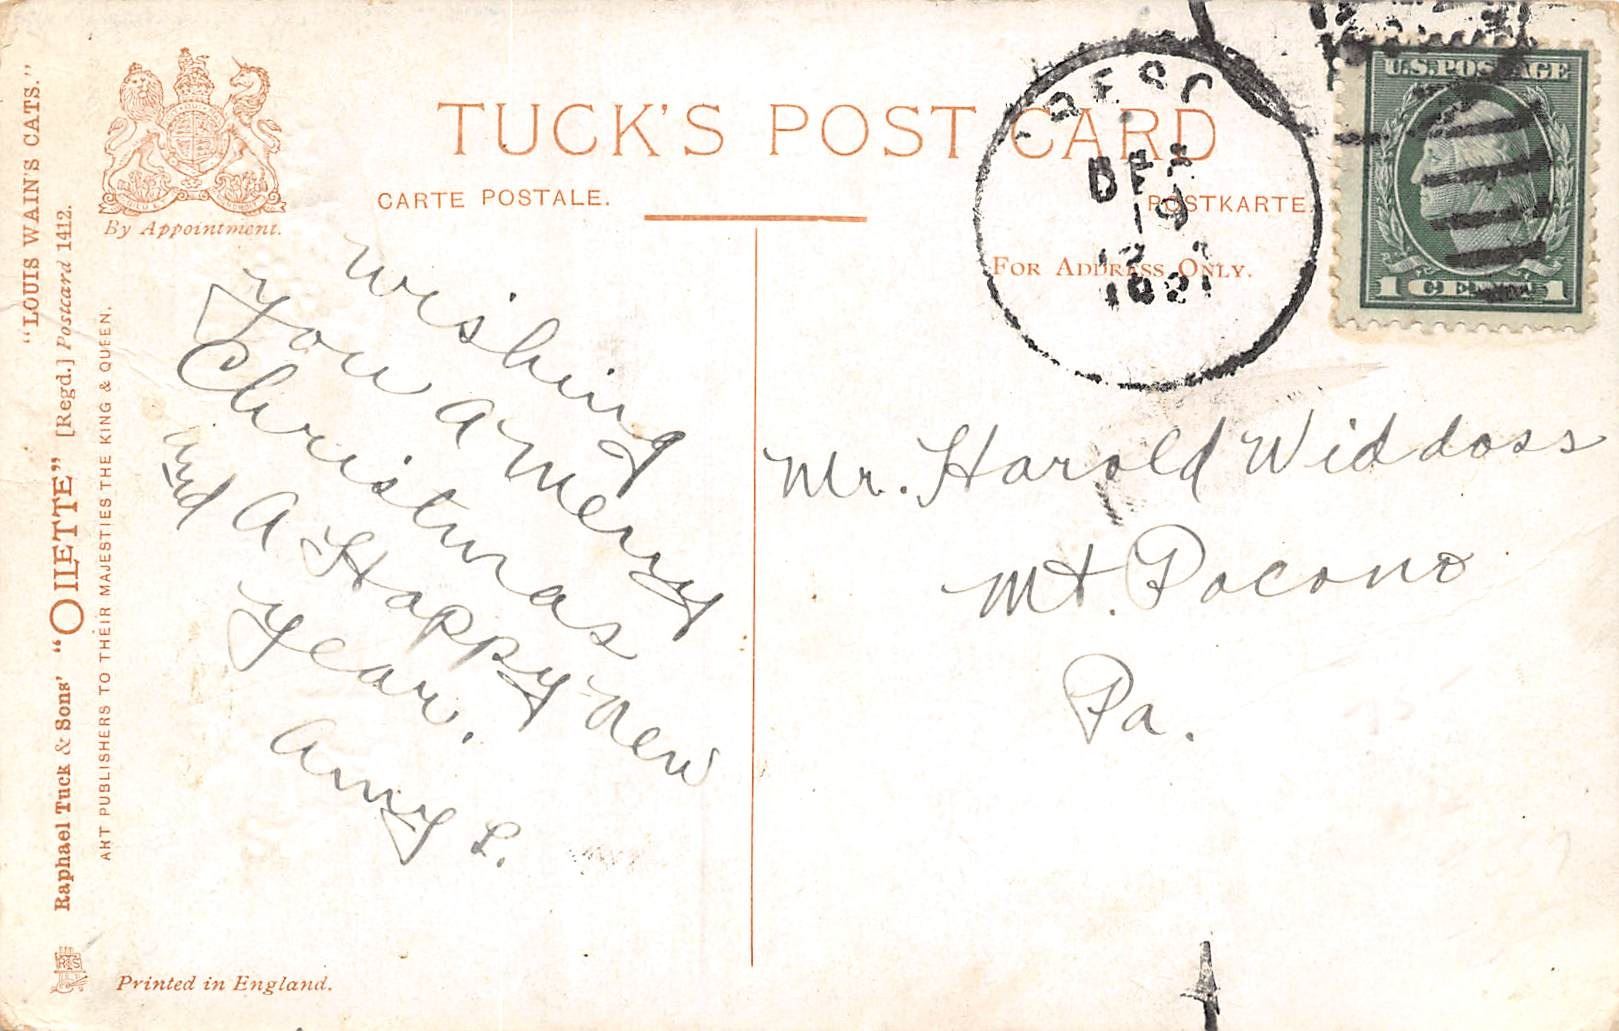 "LOUIS WAIN'S CATS."
Raphael Tuck & Sons' "OILETTE" [Regd.] Postcard 1412.
ART PUBLISHERS TO THEIR MAJESTIES THE KING & QUEEN.
By Appointment.
Printed in England.
TUCK'S POST CARD
CARTE POSTALE.
POSTKARTE
FOR ADDRESS ONLY.
U.S. POSTAGE
1 CENT 1
DEC
19
Wishing
You A Merry
Christmas
and A Happy New
Year.
Amy L.
Mr. Harold Widdoss
Mt. Pocono
Pa.